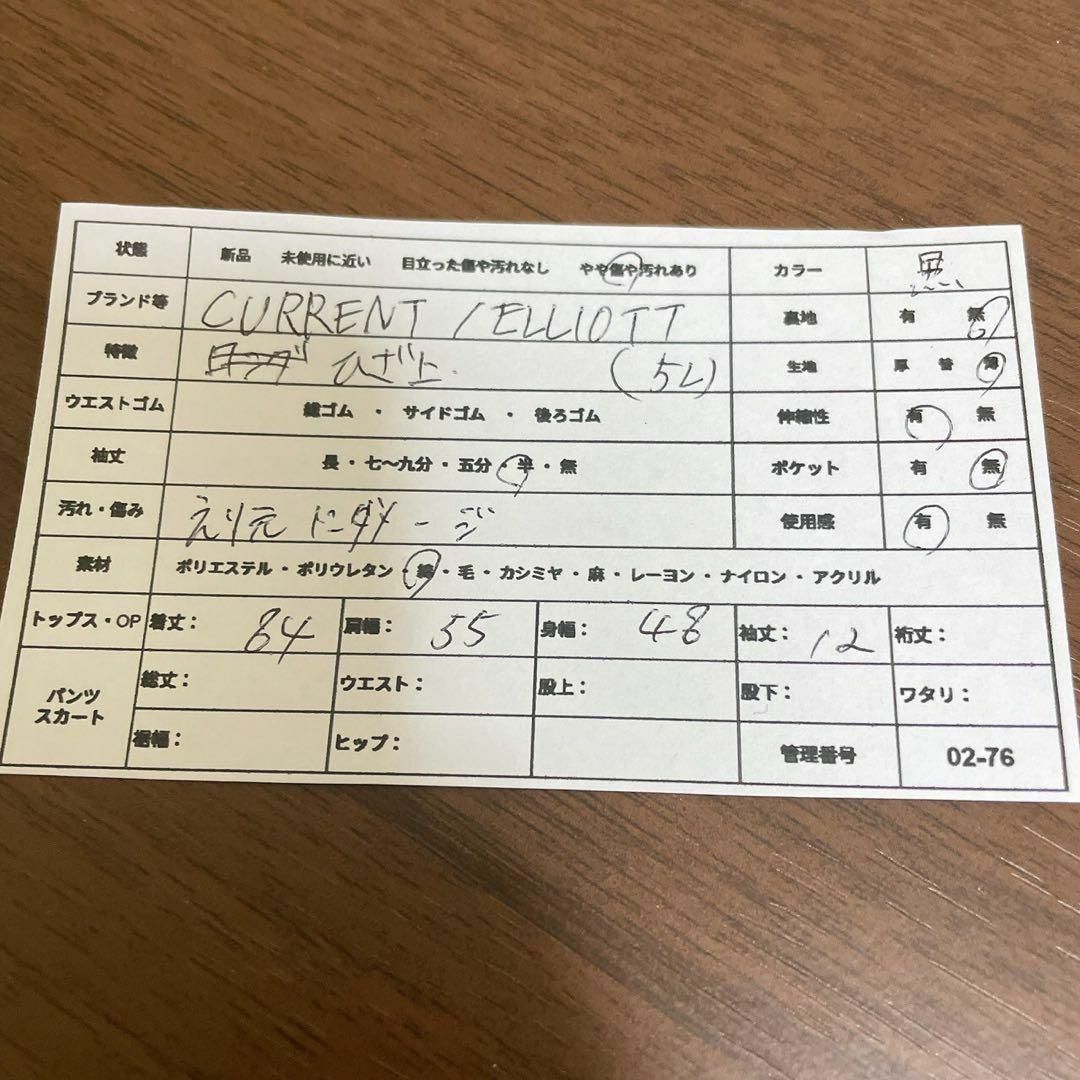 状態 新品 未使用に近い 目立った傷や汚れなし やや傷や汚れあり カラー 黒
ブランド等 CURRENT /ELLIOTT 裏地 有 無
特徴 ひざ上 (5L) 生地 厚 普 薄
ウエストゴム 総ゴム ・ サイドゴム ・ 後ろゴム 伸縮性 有 無
袖丈 長・七～九分・五分・半・無 ポケット 有 無
汚れ・傷み えり元 ダメージ 使用感 有 無
素材 ポリエステル・ポリウレタン・綿・毛・カシミヤ・麻・レーヨン・ナイロン・アクリル
トップス・OP 着丈： 84 肩幅： 55 身幅： 48 袖丈： 12 裄丈：
パンツ スカート 総丈： ウエスト： 股上： 股下： ワタリ：
裾幅： ヒップ： 管理番号 02-76